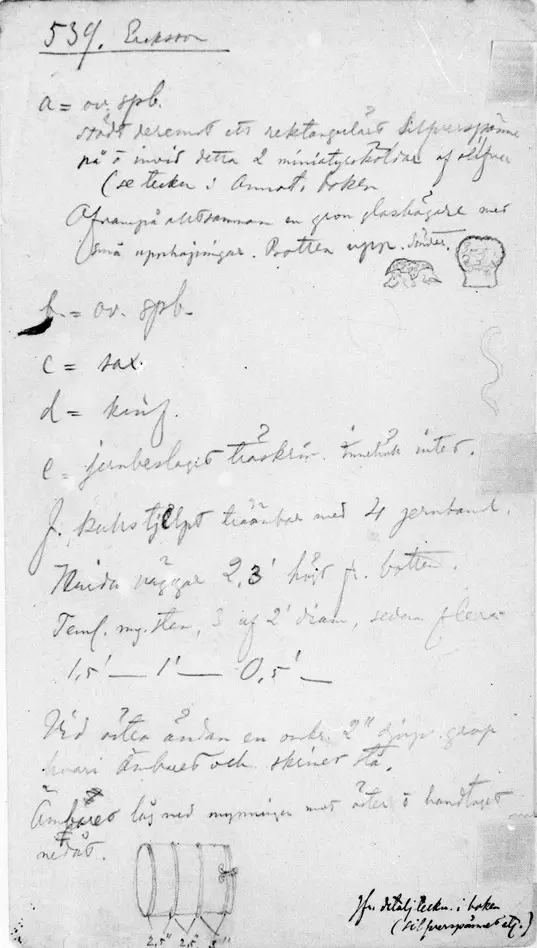 539. Eriksson
a = ov. spb.
stödt deremot ett rektangulärt silfverspänne
på ö invid detta 2 miniatyrsköldar af silfver
(se teckn. i Annot. boken
Aframpå alltsamman en grön glasbägare med
små upphöjningar. Botten upp. Sönder.
b = ov. spb.
c = sax.
d = knif.
e = jernbeslaget träskrin. Innehöll intet.
f. kullstjelpt träämbar med 4 jernband
väggar 2,3' högt fr. botten.
Teml. my. sten, 3 af 2' diam, sedan flera
1,5' — 1' — 0,5' —
Vid östra ändan en omkr. 2" djup grop
hvari ämbaret och skrinet stå.
Ämbaret låg med mynningen mot öster o handtaget
nedåt.
2,5" 2,5" 3"
Jfr. detaljteckn. i boken
(silfverspännet etc.)